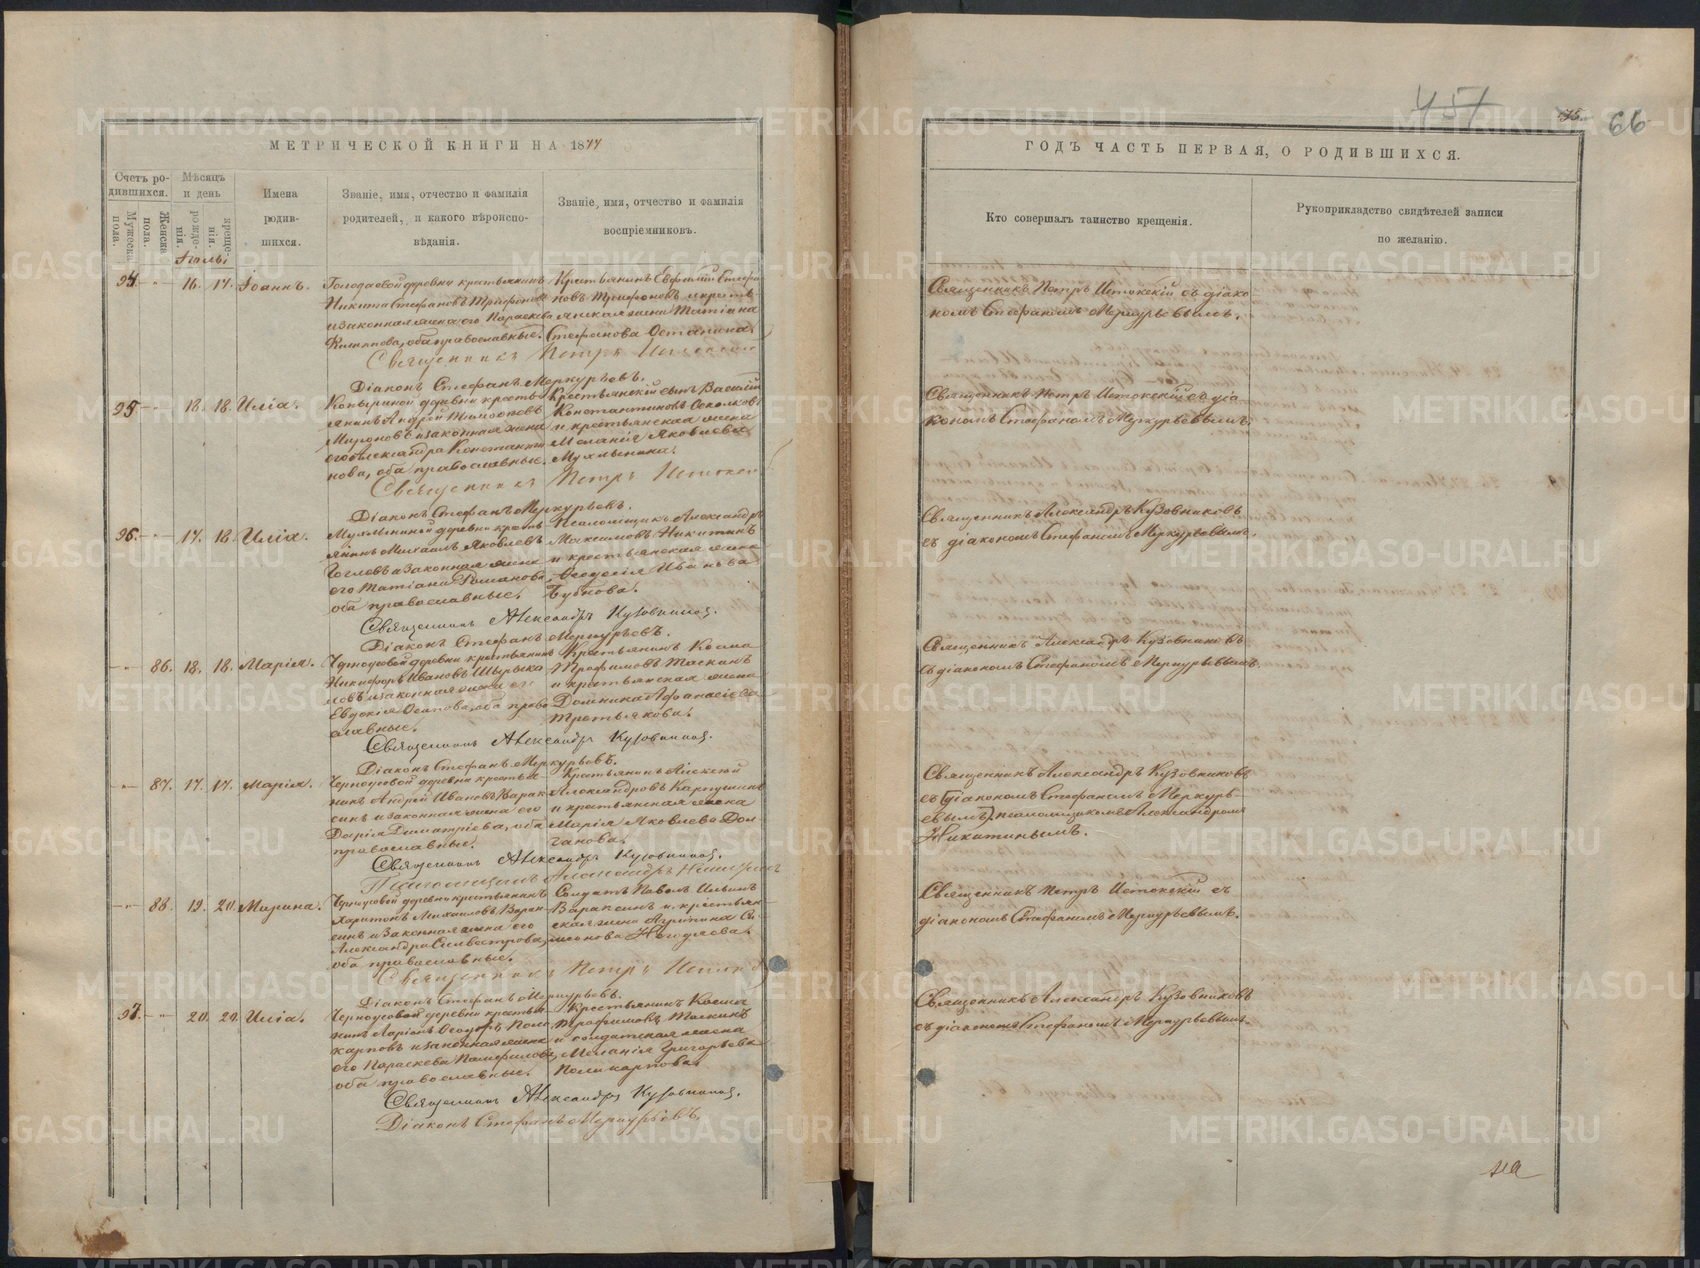 451
66
МЕТРИЧЕСКОЙ КНИГИ НА 1877
Счетъ ро-
дившихся.
Мужеска
пола.
Женска
пола.
Мѣсяцъ
и день
рожде-
нія.
креще-
нія.
Имена
родив-
шихся.
Званіе, имя, отчество и фамилія
родителей, и какого вѣроиспо-
вѣданія.
Званіе, имя, отчество и фамилія
воспріемниковъ.
Іюль
94. 16. 17. Іоаннъ.
деревни крестьянинъ
Никита Стефановъ Трифоновъ
и законная жена его Параскева
оба православные.
Крестьянинъ Евфимій
Трифоновъ и
жена Татіана
Стефанова Останина.
Священникъ Петръ Истокскій
Діаконъ Стефанъ Меркурьевъ.
95. 18. 18. Илія.
деревни
Андрей Тимофеевъ
Мироновъ и законная жена
его Александра Константи
нова, оба православные.
Крестьянскій сынъ Василій
Константиновъ
и крестьянская жена
Меланія Яковлева
Мухлынина.
Священникъ Петръ
Діаконъ Стефанъ Меркурьевъ.
96. 17. 18. Илія.
Мухлыниной деревни
Михаилъ Яковлевъ
и законная жена
его Татіана Романова,
оба православные.
Псаломщикъ Александръ
Максимовъ Никитинъ
и крестьянская жена
Ѳеодосія Иванова
Бубнова.
Священникъ Александръ Кузовниковъ.
Діаконъ Стефанъ Меркурьевъ.
86. 18. 18. Марія.
Черноусовой деревни крестьянинъ
Никифоръ Ивановъ
и законная жена его
Евдокія Осипова, оба право
славные.
Крестьянинъ Косма
Трофимовъ Таскинъ
и крестьянская жена
Домника Афанасіева
Третьякова.
Священникъ Александръ Кузовниковъ.
Діаконъ Стефанъ Меркурьевъ.
87. 17. 17. Марія.
Черноусовой деревни крестья-
нинъ Андрей Ивановъ Варак
синъ и законная жена его
Дарія Димитріева, оба
православные.
Крестьянинъ Алексѣй
Александровъ Карпушинъ
и крестьянская жена
Марія Яковлева Дол-
ганова.
Священникъ Александръ Кузовниковъ.
Псаломщикъ Александръ Никитинъ
88. 19. 20. Марина.
Черноусовой деревни крестьянинъ
Харитонъ Михаиловъ Варак
синъ и законная жена его
Александра Силвестрова,
оба православные.
Солдатъ Павелъ Ильинъ
Вараксинъ и крестьян
ская жена Агрипина
Священникъ Петръ
Діаконъ Стефанъ Меркурьевъ.
97. 20. 22. Илія.
Черноусовой деревни крестья
нинъ Ларіонъ Поли
карповъ и законная жена
его Параскева Памфилова,
оба православные.
Крестьянинъ Косма
Трофимовъ Таскинъ
и солдатская жена
Меланія Григорьева
Поликарпова.
Священникъ Александръ Кузовниковъ.
Діаконъ Стефанъ Меркурьевъ.
ГОДЪ ЧАСТЬ ПЕРВАЯ, О РОДИВШИХСЯ.
Кто совершалъ таинство крещенія.
Рукоприкладство свидѣтелей записи
по желанію.
Священникъ Петръ Истокскій съ діако
номъ Стефаномъ Меркурьевымъ.
Священникъ Петръ Истокскій съ діа
кономъ Стефаномъ Меркурьевымъ.
Священникъ Александръ Кузовниковъ
съ діакономъ Стефаномъ Меркурьевымъ.
Священникъ Александръ Кузовниковъ
съ діакономъ Стефаномъ Меркурьевымъ.
Священникъ Александръ Кузовниковъ
съ [діакономъ Стефаномъ Меркурь-
евымъ] псаломщикомъ Александромъ
Никитинымъ.
Священникъ Петръ Истокскій съ
діакономъ Стефаномъ Меркурьевымъ.
Священникъ Александръ Кузовниковъ
съ діакономъ Стефаномъ Меркурьевымъ.
на
METRIKI.GASO-URAL.RU